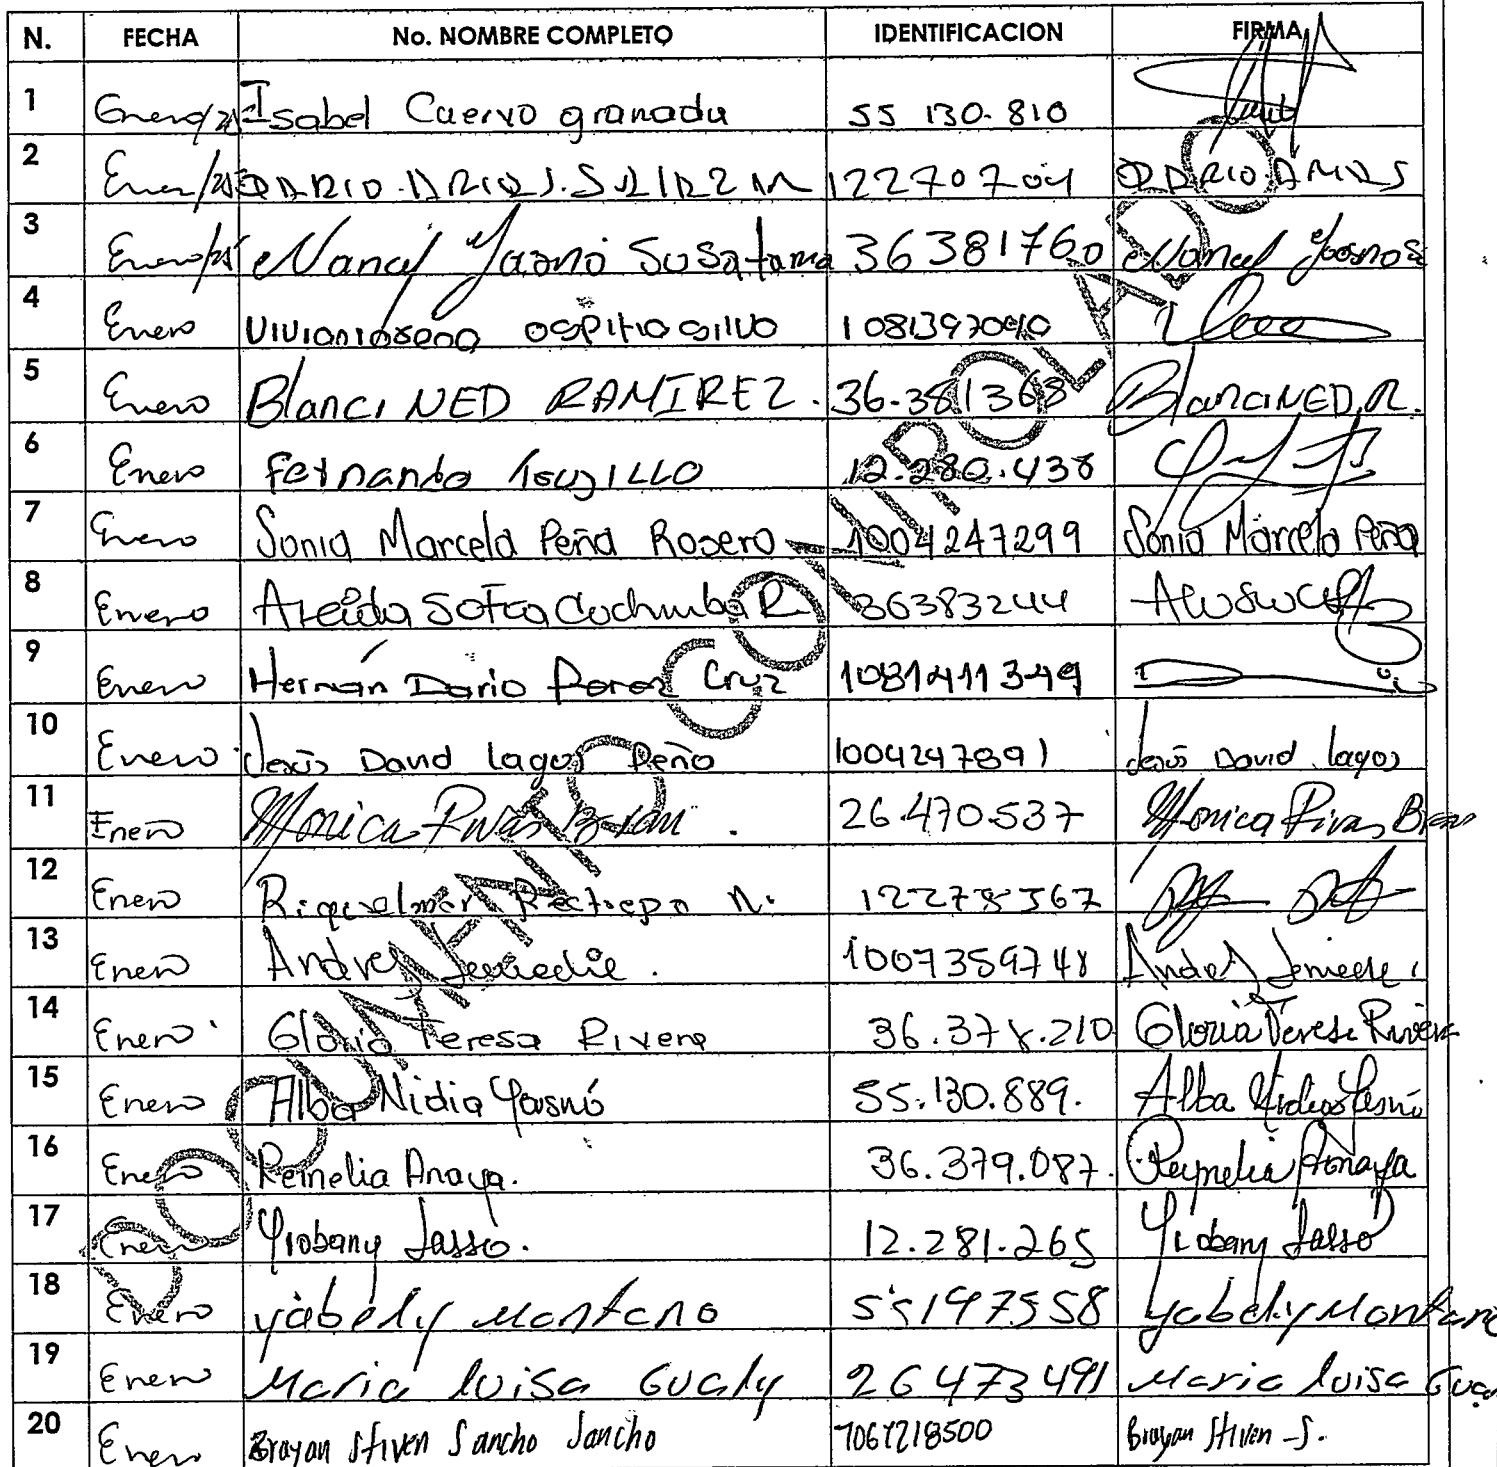 N. FECHA No. NOMBRE COMPLETO IDENTIFICACION FIRMA
1 Enero/25 Isabel Cuervo granada 55 130.810
2 Enero/25 12270704
3 Enero/25 Nancy Yasnó Susatama 36381760 Nancy Yasno S
4 Enero ospina silva 1081397090
5 Enero Blanci NED RAMIREZ. 36.381368 BlanciNED.R.
6 Enero Fernando TruJILLO 12.280.438
7 Enero Sonia Marcela Peña Rosero 1004247299 Sonia Marcela Peña
8 Enero Sofia Cochumba R. 36383244
9 Enero Hernán Dario Perez Cruz 1081411349
10 Enero Jesús David lagos Peña 1004247891 Jesús David lagos
11 Enero Monica Rivas 26.470.537 Monica Rivas
12 Enero Restrepo N. 12278367
13 Enero Andres 1007359748 Andres
14 Enero Gloria Teresa Rivera 36.378.210 Gloria Teresa Rivera
15 Enero Alba Nidia Yasnó 55.130.889. Alba Nidia Yasnó
16 Enero Remelia Anaya. 36.379.087. Reymelia Anaya
17 Enero Yiobany Lasso. 12.281.265 Yiobany Lasso
18 Enero yabely Montano 55197558 yabely Montano
19 Enero Maria luisa Gualy 26473491 Maria luisa Gua
20 Enero Brayan Stiven Sancho Sancho 1067218500 Brayan Stiven -S.
DOCUMENTO CONTROLADO